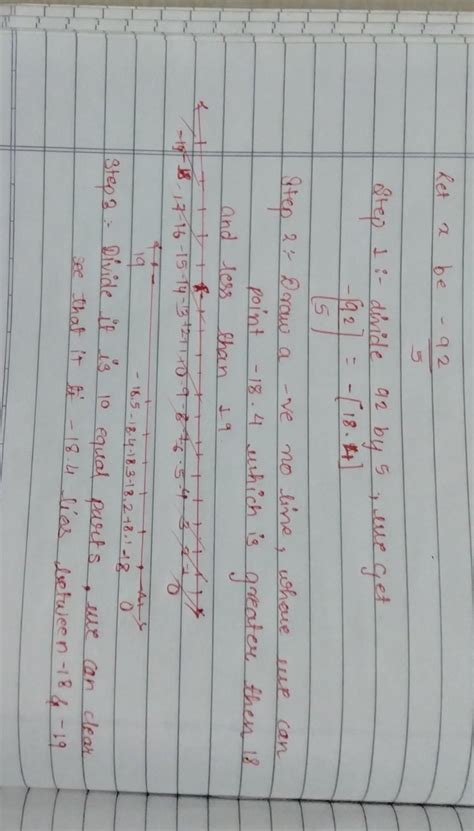 Let x be -92
5
Step 1 :- divide 92 by 5, we get.
-[92/5] = -[18.4]
Step 2 :- Draw a -ve no line, where we can
point -18.4 which is greater then 18
and less than 19
-19 -18 -17 -16 -15 -14 -3 -12 -11 -10 -9 -8 -7 -6 -5 -4 -3 -2 -1 0
-19 -18.5 -18.4 -18.3 -18.2 -18.1 -18 0
Step 3 :- Divide it is 10 equal parts, we can clear
see that it li -18.4 lies between -18 & -19